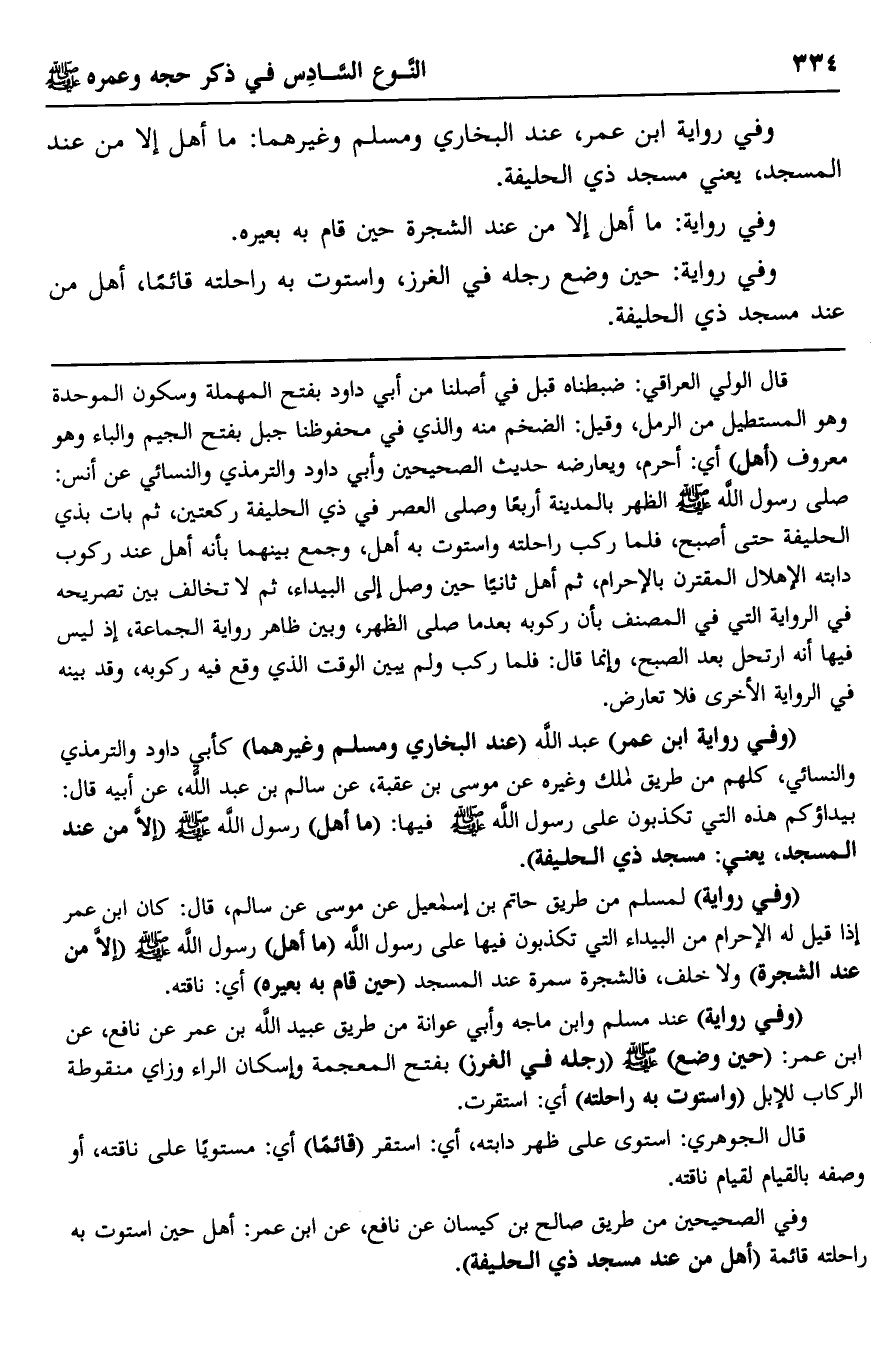 ٣٣٤
النَّوع السَّادِس في ذكر حجه وعمره ﷺ
وفي رواية ابن عمر، عند البخاري ومسلم وغيرهما: ما أهل إلا من عند
المسجد، يعني مسجد ذي الحليفة.
وفي رواية: ما أهل إلا من عند الشجرة حين قام به بعيره.
وفي رواية: حين وضع رجله في الغرز، واستوت به راحلته قائمًا، أهل من
عند مسجد ذي الحليفة.
قال الولي العراقي: ضبطناه قبل في أصلنا من أبي داود بفتح المهملة وسكون الموحدة
وهو المستطيل من الرمل، وقيل: الضخم منه والذي في محفوظنا جبل بفتح الجيم والباء وهو
معروف (أهل) أي: أحرم، ويعارضه حديث الصحيحين وأبي داود والترمذي والنسائي عن أنس:
صلى رسول اللَّه ﷺ الظهر بالمدينة أربعًا وصلى العصر في ذي الحليفة ركعتين، ثم بات بذي
الحليفة حتى أصبح، فلما ركب راحلته واستوت به أهل، وجمع بينهما بأنه أهل عند ركوب
دابته الإهلال المقترن بالإحرام، ثم أهل ثانيًا حين وصل إلى البيداء، ثم لا تخالف بين تصريحه
في الرواية التي في المصنف بأن ركوبه بعدما صلى الظهر، وبين ظاهر رواية الجماعة، إذ ليس
فيها أنه ارتحل بعد الصبح، وإنما قال: فلما ركب ولم يبين الوقت الذي وقع فيه ركوبه، وقد بينه
في الرواية الأخرى فلا تعارض.
(وفي رواية ابن عمر) عبد اللَّه (عند البخاري ومسلم وغيرهما) كأبي داود والترمذي
والنسائي، كلهم من طريق مٰلك وغيره عن موسى بن عقبة، عن سالم بن عبد اللَّه، عن أبيه قال:
بيداؤكم هذه التي تكذبون على رسول اللَّه ﷺ فيها: (ما أهل) رسول اللَّه ﷺ (إلاَّ من عند
المسجد، يعني: مسجد ذي الحليفة).
(وفي رواية) لمسلم من طريق حاتم بن إسمٰعيل عن موسى عن سالم، قال: كان ابن عمر
إذا قيل له الإحرام من البيداء التي تكذبون فيها على رسول اللَّه (ما أهل) رسول اللَّه ﷺ (إلاَّ من
عند الشجرة) ولا خلف، فالشجرة سمرة عند المسجد (حين قام به بعيره) أي: ناقته.
(وفي رواية) عند مسلم وابن ماجه وأبي عوانة من طريق عبيد اللَّه بن عمر عن نافع، عن
ابن عمر: (حين وضع) ﷺ (رجله في الغرز) بفتح المعجمة وإسكان الراء وزاي منقوطة
الركاب للإبل (واستوت به راحلته) أي: استقرت.
قال الجوهري: استوى على ظهر دابته، أي: استقر (قائمًا) أي: مستويًا على ناقته، أو
وصفه بالقيام لقيام ناقته.
وفي الصحيحين من طريق صالح بن كيسان عن نافع، عن ابن عمر: أهل حين استوت به
راحلته قائمة (أهل من عند مسجد ذي الحليفة).